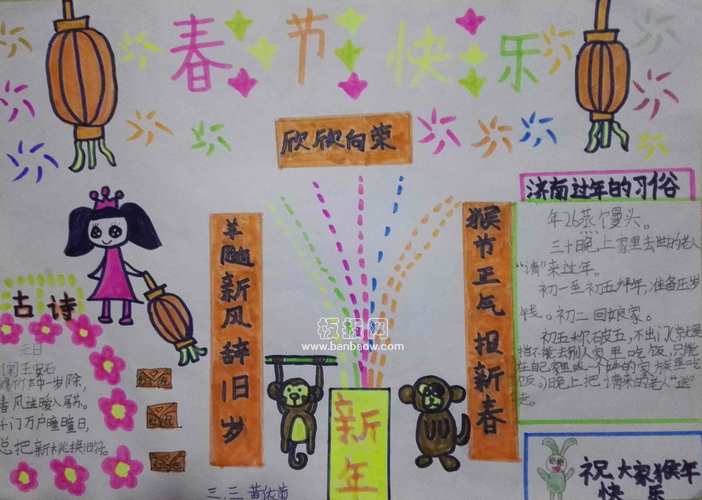 春节快乐
欣欣向荣
羊随新风辞旧岁
猴节正气报新春
新年
板报网
www.banbaow.com
古诗
元日
王安石
一岁除，
春风送暖入屠苏。
千门万户曈曈日，
总把新桃换旧符。
济南过年的习俗
年26蒸个馒头。
三十晚上家里去世的老人
“请”来过年。
初一至初五拜年，准备压岁
钱。初二回娘家。
初五称破五，不出门，
不能去别人家里吃饭，只能
在自己
饭，晚上把请来的老人“送”
走。
祝大家猴年
快乐
三.三